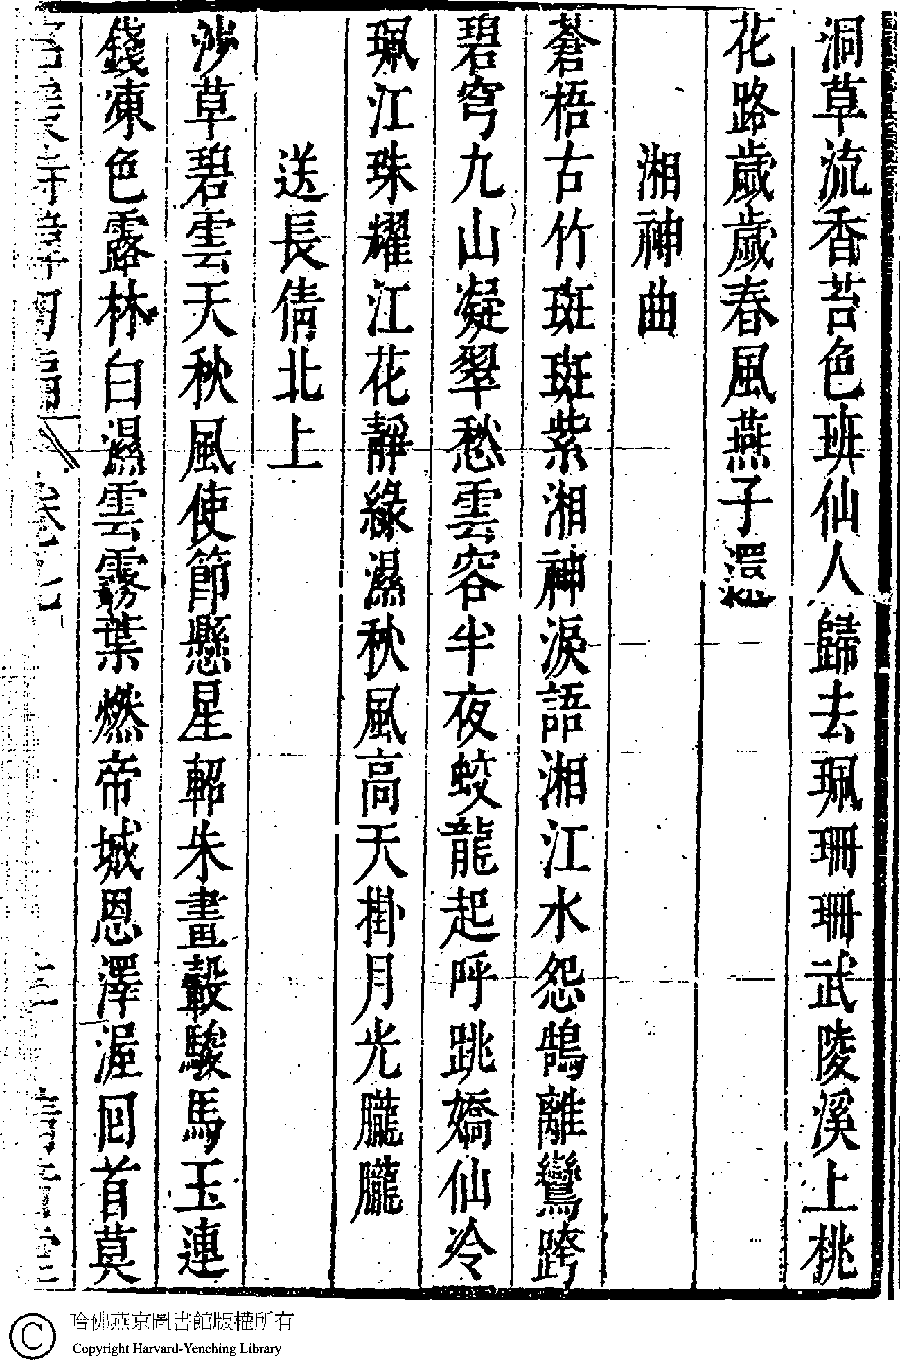 洞草流香苔色班仙人歸去珮珊珊武陵溪上桃
花路歲歲春風燕子還
湘神曲
蒼梧古竹斑斑紫湘神淚語湘江水怨鵠離鸞跨
碧穹九山凝翠愁雲容半夜蛟龍起呼跳嬌仙冷
珮江珠耀江花靜綠濕秋風高天掛月光朧朧
送長倩北上
沙草碧雲天秋風使節懸星軺朱畫轂駿馬玉連
錢凍色露林白濕雲霧葉燃帝城恩澤渥囘首莫
哈佛燕京圖書館版權所有
Copyright Harvard-Yenching Library